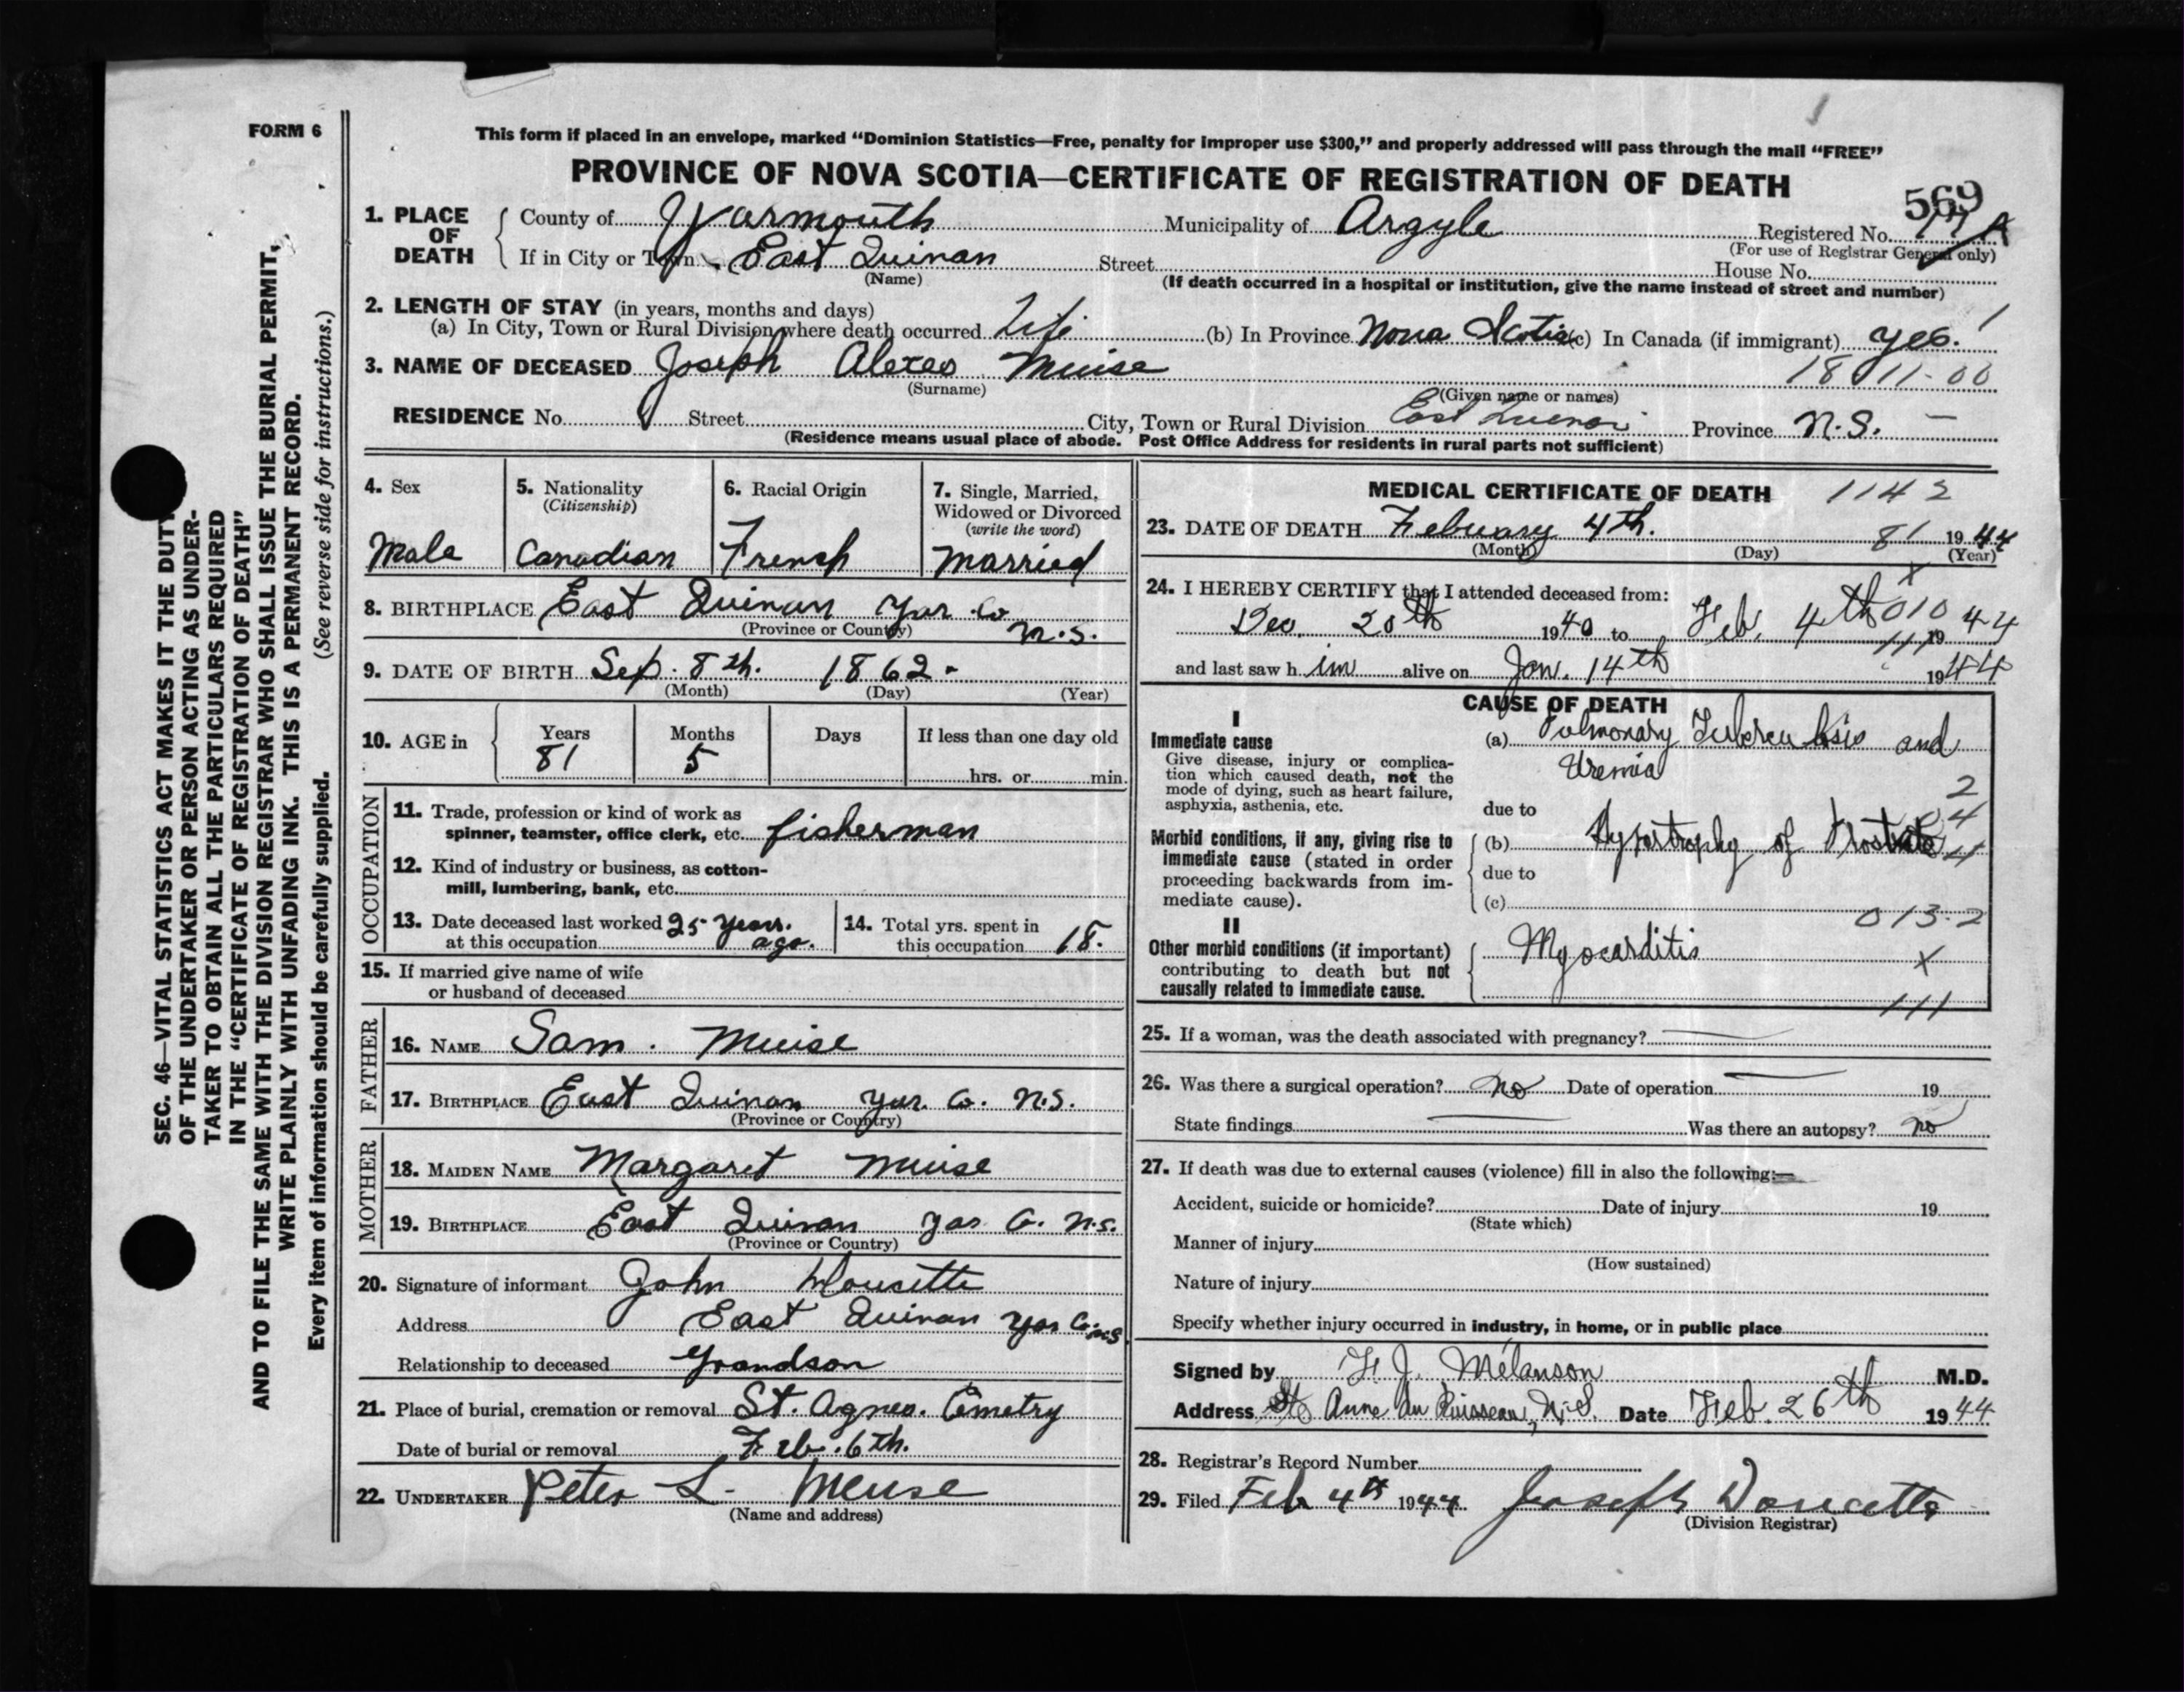 FORM 6
This form if placed in an envelope, marked "Dominion Statistics—Free, penalty for improper use $300," and properly addressed will pass through the mail "FREE"
PROVINCE OF NOVA SCOTIA—CERTIFICATE OF REGISTRATION OF DEATH
569
1. PLACE OF DEATH
County of Yarmouth Municipality of Argyle Registered No. 77A
(For use of Registrar General only)
If in City or Town East Quinan Street House No.
(Name)
(If death occurred in a hospital or institution, give the name instead of street and number)
2. LENGTH OF STAY (in years, months and days)
(a) In City, Town or Rural Division where death occurred Life (b) In Province Nova Scotia (c) In Canada (if immigrant) yes.
3. NAME OF DECEASED Joseph Alexes Muise 18 11-00
(Surname) (Given name or names)
RESIDENCE No. Street City, Town or Rural Division East Quinan Province N.S. —
(Residence means usual place of abode. Post Office Address for residents in rural parts not sufficient)
4. Sex
Male
5. Nationality
(Citizenship)
Canadian
6. Racial Origin
French
7. Single, Married, Widowed or Divorced
(write the word)
Married
8. BIRTHPLACE East Quinan Yar Co
(Province or Country) N.S.
9. DATE OF BIRTH Sep. 8th. 1862.
(Month) (Day) (Year)
10. AGE in
Years Months Days If less than one day old
81 5 hrs. or min.
OCCUPATION
11. Trade, profession or kind of work as
spinner, teamster, office clerk, etc. fisherman
12. Kind of industry or business, as cotton-
mill, lumbering, bank, etc.
13. Date deceased last worked 25 years.
at this occupation ago.
14. Total yrs. spent in
this occupation 18.
15. If married give name of wife
or husband of deceased
FATHER
16. NAME Sam. Muise
17. BIRTHPLACE East Quinan Yar. Co. N.S.
(Province or Country)
MOTHER
18. MAIDEN NAME Margaret Muise
19. BIRTHPLACE East Quinan Yar Co. N.S.
(Province or Country)
20. Signature of informant John Doucette
Address East Quinan Yar Co. N.S
Relationship to deceased Grandson
21. Place of burial, cremation or removal St. Agnes. Cemetry
Date of burial or removal Feb. 6th.
22. UNDERTAKER Peter L. Meuse
(Name and address)
MEDICAL CERTIFICATE OF DEATH 1142
23. DATE OF DEATH Febuary 4th. 81 1944
(Month) (Day) (Year)
24. I HEREBY CERTIFY that I attended deceased from:
Dec. 20th 1940 to Feb. 4th 010 1944
111
and last saw h im alive on Jan. 14th 1944
CAUSE OF DEATH
I
Immediate cause
Give disease, injury or complica-
tion which caused death, not the
mode of dying, such as heart failure,
asphyxia, asthenia, etc.
(a) Pulmonary Tuberculosis and
Uremia
2
due to
4
Morbid conditions, if any, giving rise to
immediate cause (stated in order
proceeding backwards from im-
mediate cause).
(b) Hypertrophy of Prostate 11
due to
(c)
013-2
II
Other morbid conditions (if important)
contributing to death but not
causally related to immediate cause.
Myocarditis
X
111
25. If a woman, was the death associated with pregnancy? —
26. Was there a surgical operation? no Date of operation — 19
State findings — Was there an autopsy? no
27. If death was due to external causes (violence) fill in also the following:—
Accident, suicide or homicide? Date of injury 19
(State which)
Manner of injury
(How sustained)
Nature of injury
Specify whether injury occurred in industry, in home, or in public place
Signed by F. J. Mélanson M.D.
Address Ste Anne du Ruisseau, N.S. Date Feb. 26th 1944
28. Registrar's Record Number
29. Filed Feb 4th 1944 Joseph Doucette
(Division Registrar)
SEC. 46—VITAL STATISTICS ACT MAKES IT THE DUTY
OF THE UNDERTAKER OR PERSON ACTING AS UNDER-
TAKER TO OBTAIN ALL THE PARTICULARS REQUIRED
IN THE "CERTIFICATE OF REGISTRATION OF DEATH"
AND TO FILE THE SAME WITH THE DIVISION REGISTRAR WHO SHALL ISSUE THE BURIAL PERMIT,
WRITE PLAINLY WITH UNFADING INK. THIS IS A PERMANENT RECORD.
Every item of information should be carefully supplied. (See reverse side for instructions.)